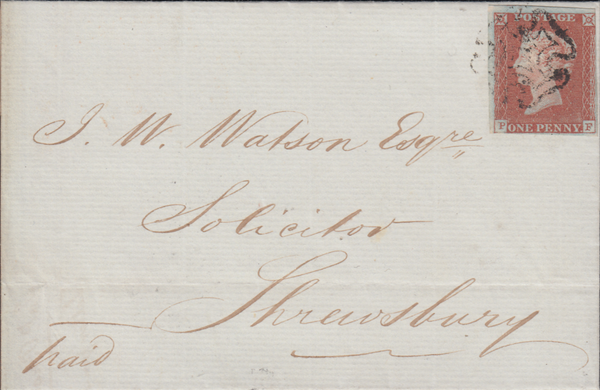 POSTAGE
ONE PENNY
P F
J. W. Watson Esqre
Solicitor
Shrewsbury
paid